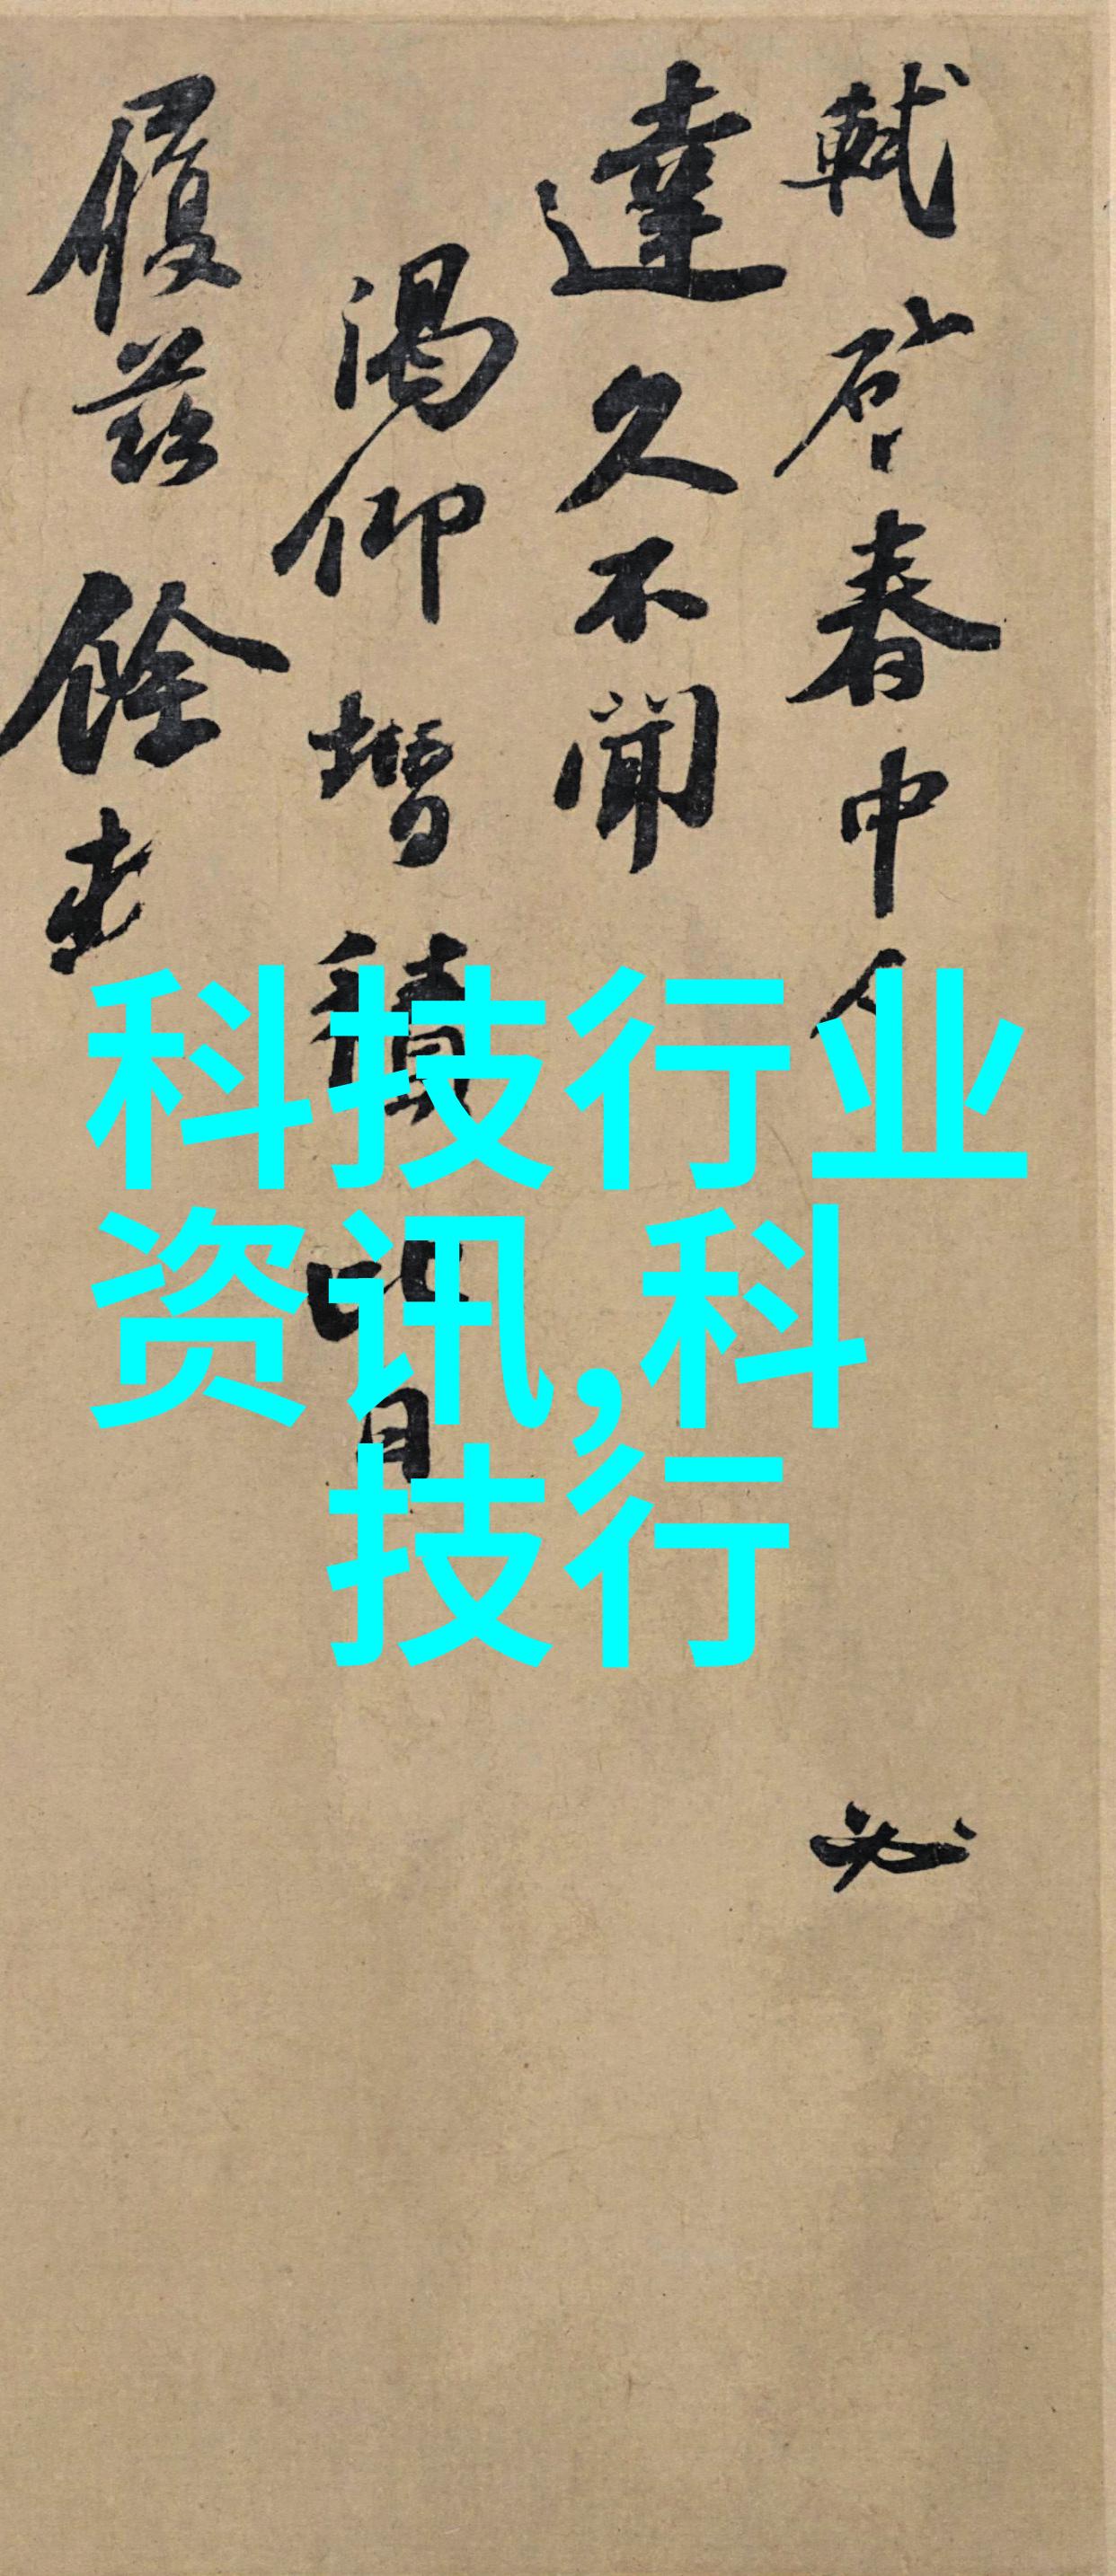 軾啓春中
必
達久不聞
渴仰增積比日
履茲餘
科技行业
资讯,科
技行